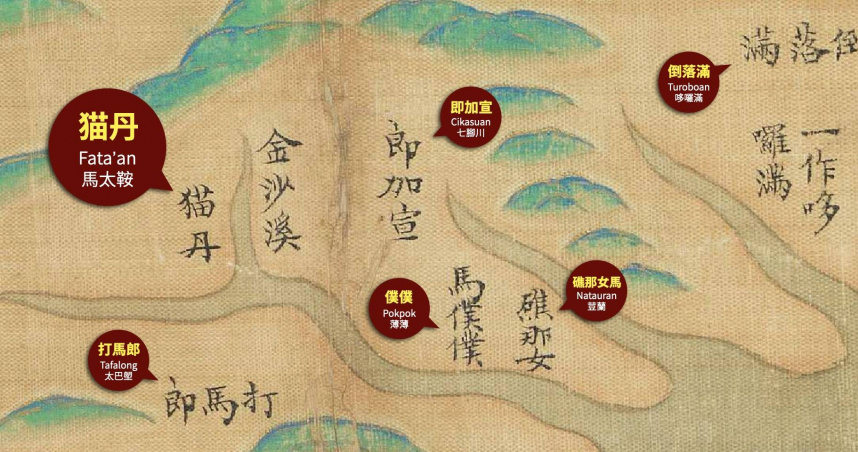 倒落滿
Turoboan
哆囉滿
落滿
一作哆
囉滿
即加宣
Cikasuan
七腳川
郎加宣
猫丹
Fata’an
馬太鞍
金沙溪
猫丹
礁那女馬
Natauran
荳蘭
礁那女
馬僕僕
僕僕
Pokpok
薄薄
打馬郎
Tafalong
太巴塱
打馬郎